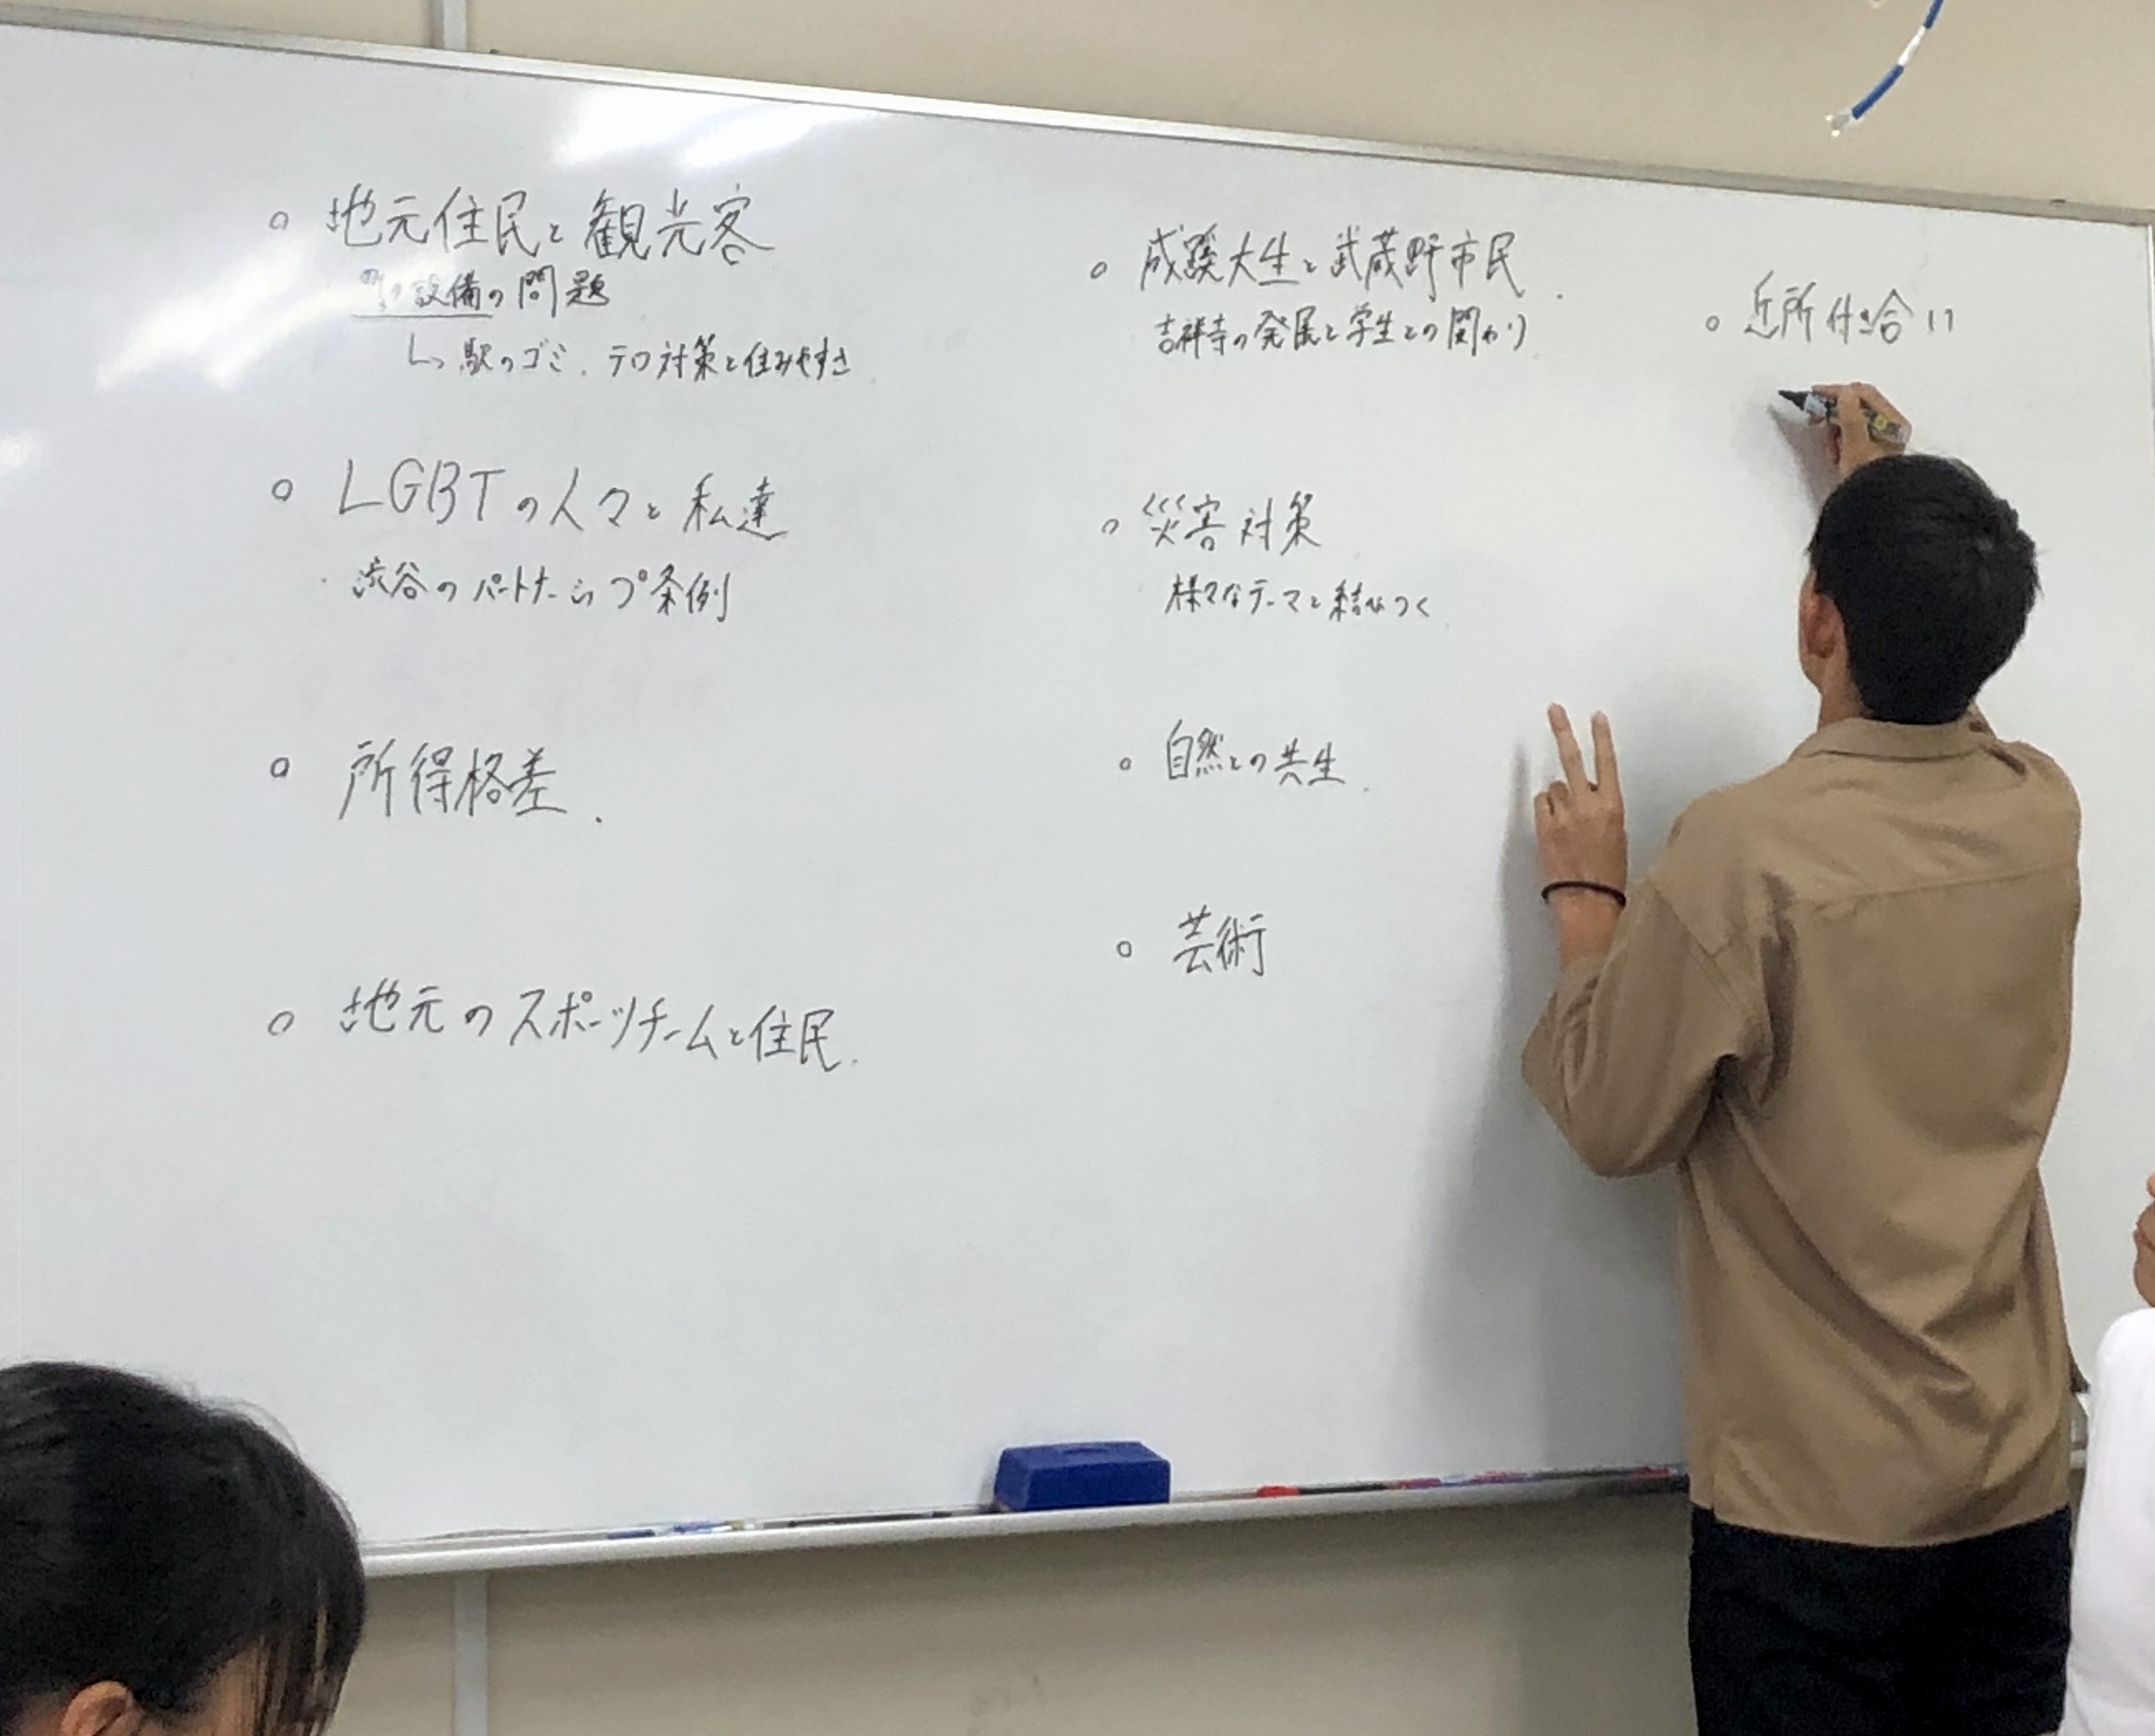 ○ 地元住民と観光客
町の設備の問題
└→駅のゴミ、テロ対策と住みやすさ
○ LGBTの人々と私達
・渋谷のパートナーシップ条例
○ 所得格差.
○ 地元のスポーツチームと住民.
○ 成蹊大生と武蔵野市民.
吉祥寺の発展と学生との関わり
○ 災害対策
様々なテーマと結びつく
○ 自然との共生.
○ 芸術
○ 近所付き合い